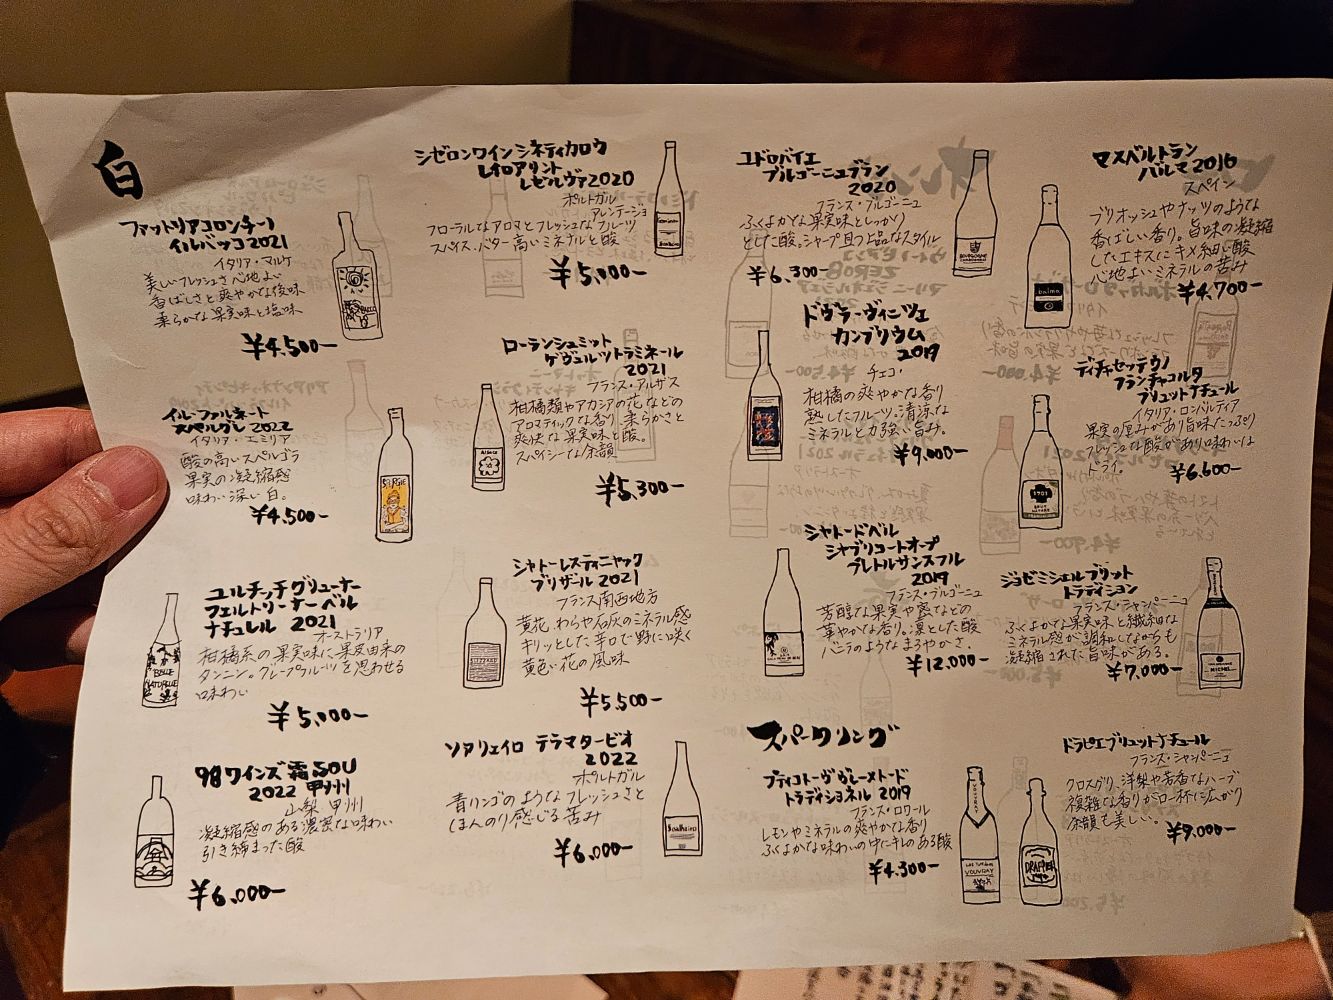 白
ファットリアコロンチーノ
イルバッコ2021
イタリア・マルケ
美しいフレッシュさ心地よい
香ばしさと爽やかな後味
柔らかな果実味と塩味
¥4,500-
イル・ファルネート
スペルグレ2022
イタリア・エミリア
酸の高いスペルゴラ
果実の凝縮感
味わい深い白。
¥4,500-
ユルチッチグリューナー
フェルトリーナーベル
ナチュレル 2021
オーストラリア
柑橘系の果実味に果皮由来の
タンニン。グレープフルーツを思わせる
味わい
¥5,000-
98ワインズ霜SOU
2022 甲州
山梨 甲州
凝縮感のある濃密な味わい
引き締まった酸
¥6,000-
シゼロンワインシネティカロウ
レイロアリント
レゼルヴァ2020
ポルトガル
アレンテージョ
フローラルなアロマとフレッシュなフルーツ
スパイス、バター高いミネラルと酸
¥5,000-
ローランシュミット
ゲヴュルツトラミネール
2021
フランス・アルザス
柑橘類やアカシアの花などの
アロマティックな香り。柔らかさと
爽快な果実味と酸。
スパイシーな余韻
¥5,300-
シャトーレスティニャック
ブリザール 2021
フランス南西地方
黄花、わらや石灰のミネラル感
キリッとした辛口で野に咲く
黄色い花の風味
¥5.500-
ソアリェイロ テラマターピオ
2022
ポルトガル
青リンゴのようなフレッシュさと
ほんのり感じる苦み
¥6,000-
ユドロバイエ
ブルゴーニュブラン
2020
フランス・ブルゴーニュ
ふくよかな果実味としっかり
とした酸。シャープ且つ上品なスタイル
¥6,300-
ドヴラーヴィニツェ
カンブリウム
2019
チェコ・
柑橘の爽やかな香り
熟したフルーツ、清涼な
ミネラルと力強い旨み。
¥9,000-
シャトードベル
シャブリコートオープ
プレトルサンスフル
2019
フランス・ブルゴーニュ
芳醇な果実や蜜などの
華やかな香り。凛とした酸
バニラのようなまろやかさ。
¥12,000-
スパークリング
プティコトーヴヴレーメトード
トラディショネル 2019
フランス・ロワール
レモンやミネラルの爽やかな香り
ふくよかな味わいの中にキレのある酸
¥4.300-
マスベルトラン
バルマ2016
スペイン
ブリオッシュやナッツのような
香ばしい香り。旨味の凝縮
したエキスにキメ細い酸
心地よいミネラルの苦み
¥4,700-
ディチャセッテウノ
フランチャコルタ
ブリュットナチュール
イタリア・ロンバルディア
果実の厚みがあり旨味たっぷり
フレッシュな酸があり味わいは
ドライ。
¥6.600-
ジョゼミシェルブリット
トラディション
フランス・シャンパーニュ
ふくよかな果実味と繊細な
ミネラル感が調和しながらも
凝縮された旨味がある。
¥7,000-
ドラピエブリュットナチュール
フランス・シャンパーニュ
クロスグリ、洋梨や芳香なハーブ
複雑な香りがロ一杯に広がり
余韻も美しい。
¥9,000-
balma
1701
ALSACE
BELLE
NATURELLE
VOUVRAY
DRAPPIER
MICHEL